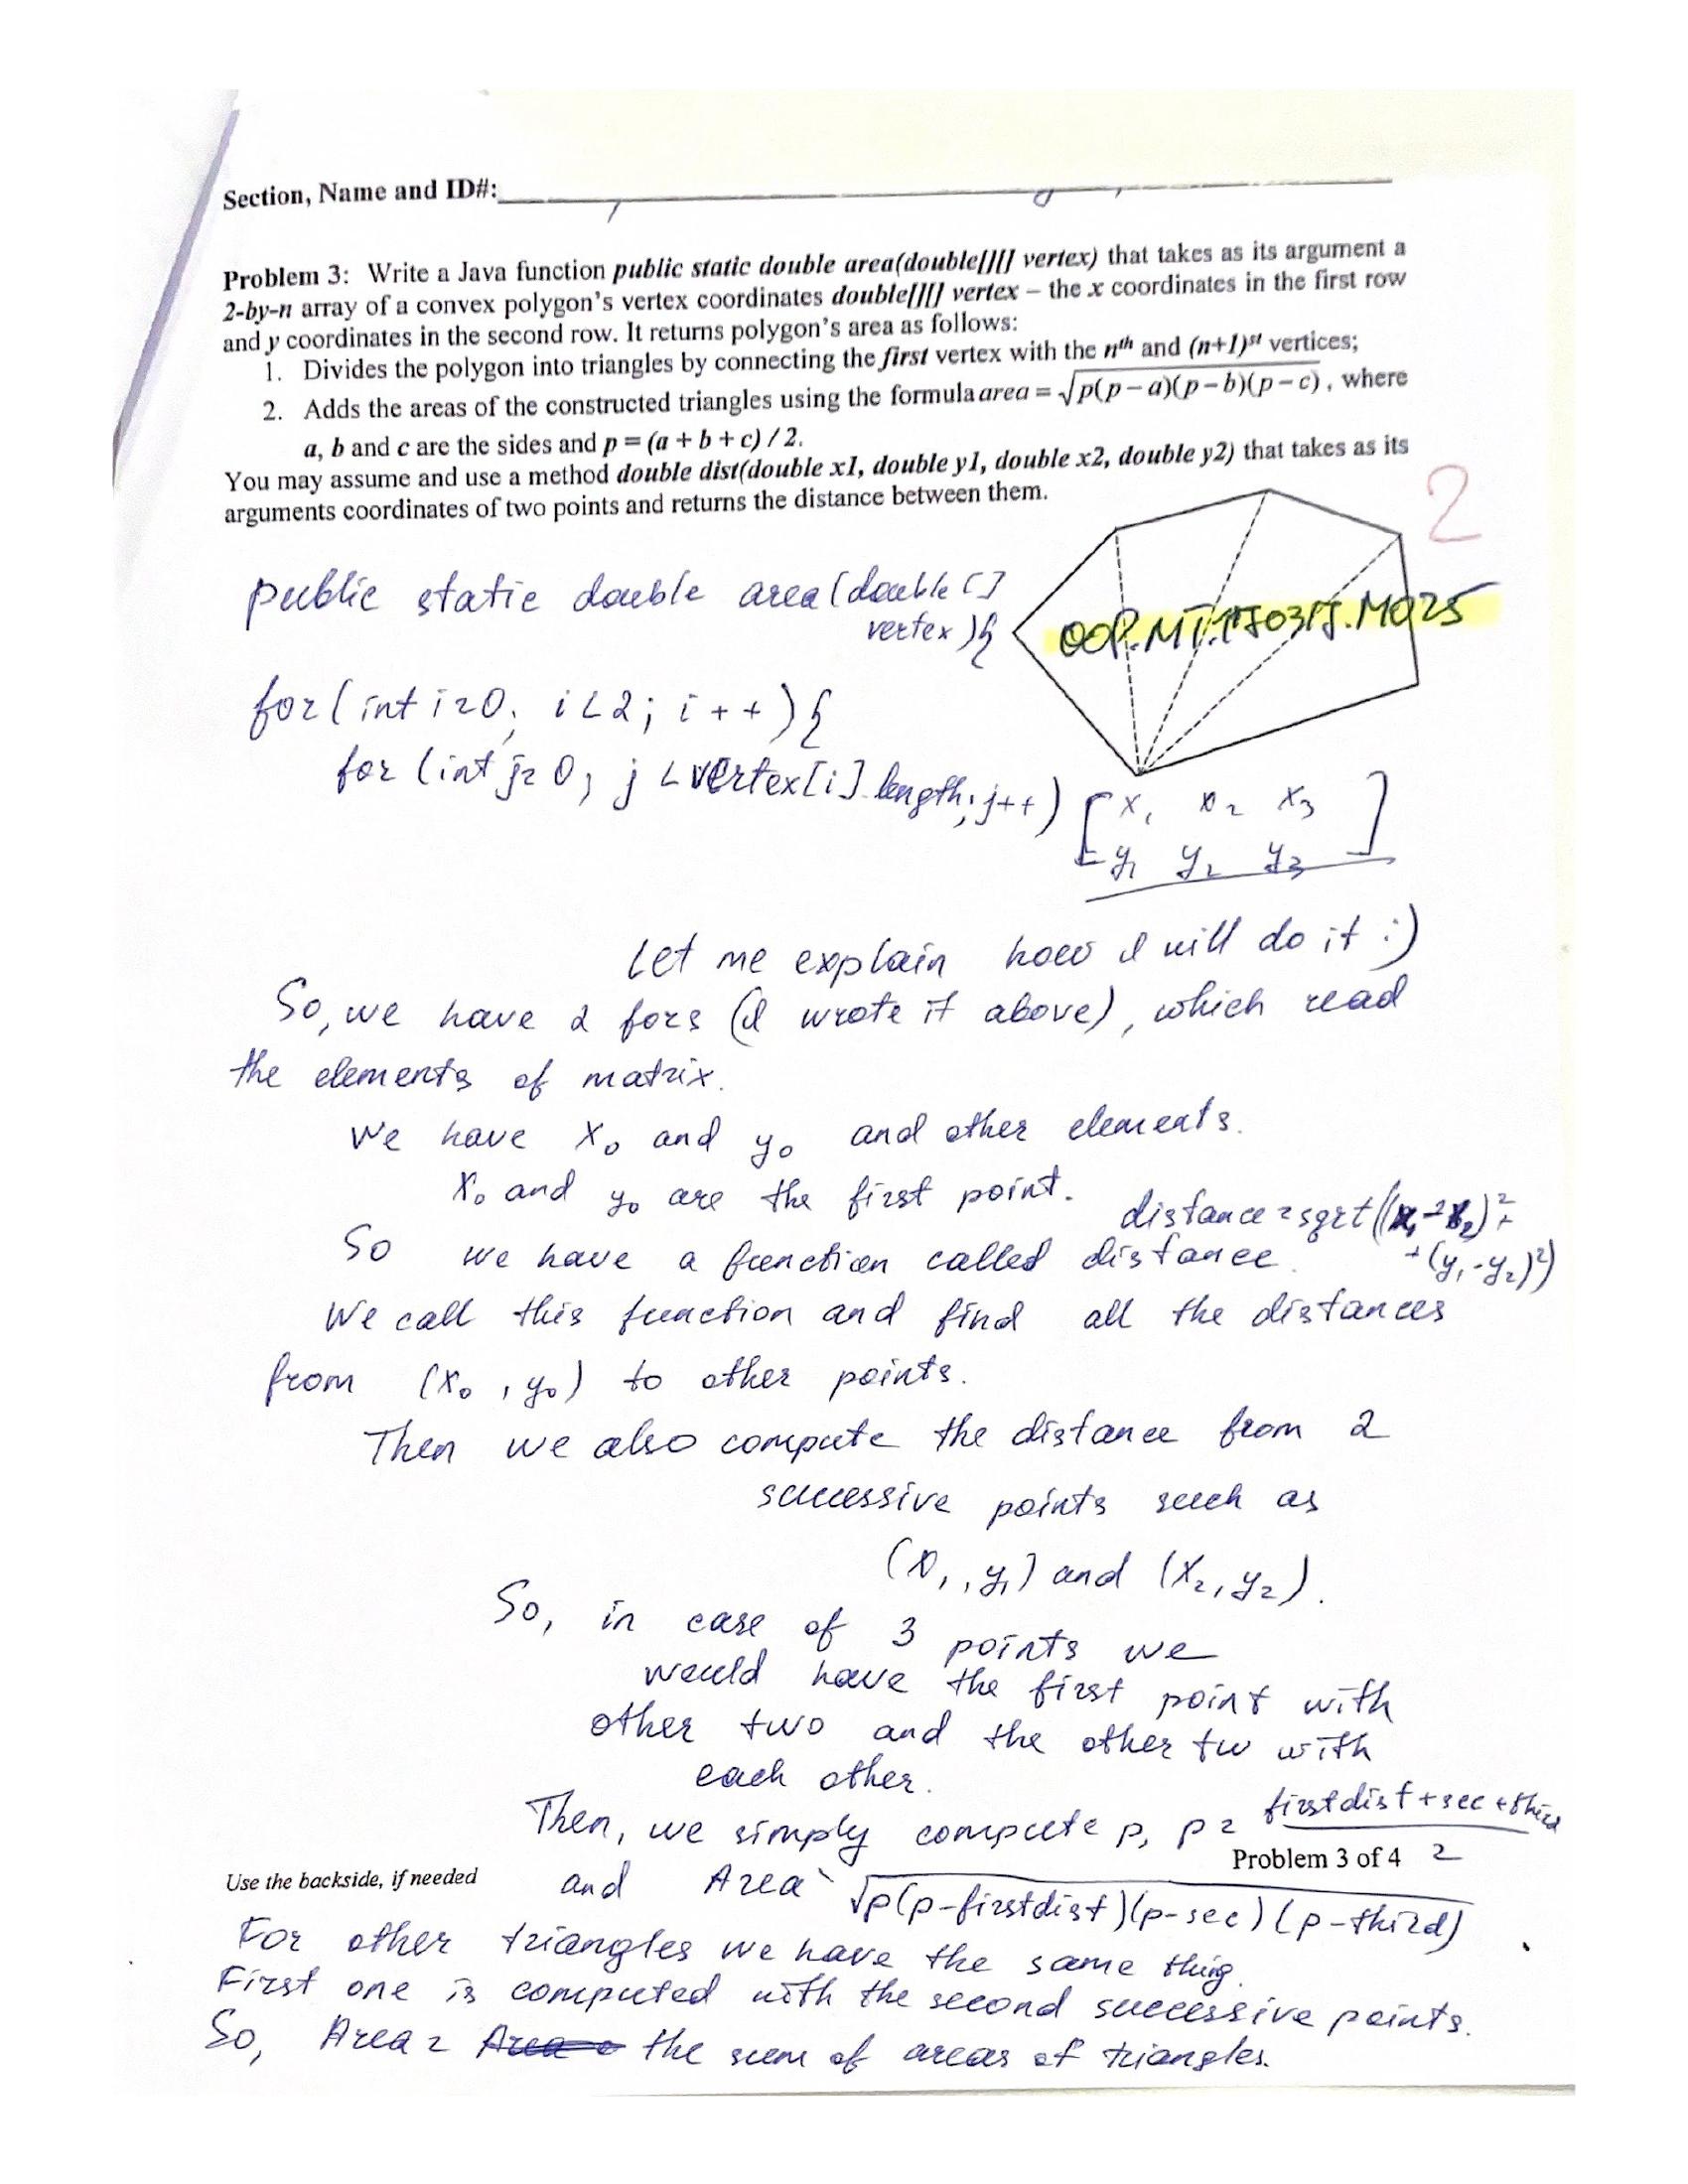 Section, Name and ID#:
Problem 3: Write a Java function public static double area(double[][] vertex) that takes as its argument a
2-by-n array of a convex polygon's vertex coordinates double[][] vertex – the x coordinates in the first row
and y coordinates in the second row. It returns polygon's area as follows:
1. Divides the polygon into triangles by connecting the first vertex with the nth and (n+1)st vertices;
2. Adds the areas of the constructed triangles using the formula area = √p(p – a)(p – b)(p – c), where
a, b and c are the sides and p = (a + b + c) / 2.
You may assume and use a method double dist(double x1, double y1, double x2, double y2) that takes as its
arguments coordinates of two points and returns the distance between them.
2
public static double area(double []
vertex){
OOP.MT.
.M025
for(int i=0; i<2; i++){
for (int j=0; j<vertex[i].length; j++)
[x1 x2 x3]
[y1 y2 y3]
Let me explain how I will do it :)
So, we have 2 fors (I wrote it above), which read
the elements of matrix.
We have x0 and y0 and other elements.
x0 and y0 are the first point.
distance = sqrt((x1-x2)²+
+(y1-y2)²)
So we have a function called distance.
We call this function and find all the distances
from (x0, y0) to other points.
Then we also compute the distance from 2
successive points such as
(x1, y1) and (x2, y2).
So, in case of 3 points we
would have the first point with
other two and the other tw with
each other.
Then, we simply compute p, p = firstdist+sec+third
2
Problem 3 of 4
Use the backside, if needed
and Area = √p(p-firstdist)(p-sec)(p-third)
For other triangles we have the same thing.
First one is computed with the second successive points.
So, Area = Area = the sum of areas of triangles.